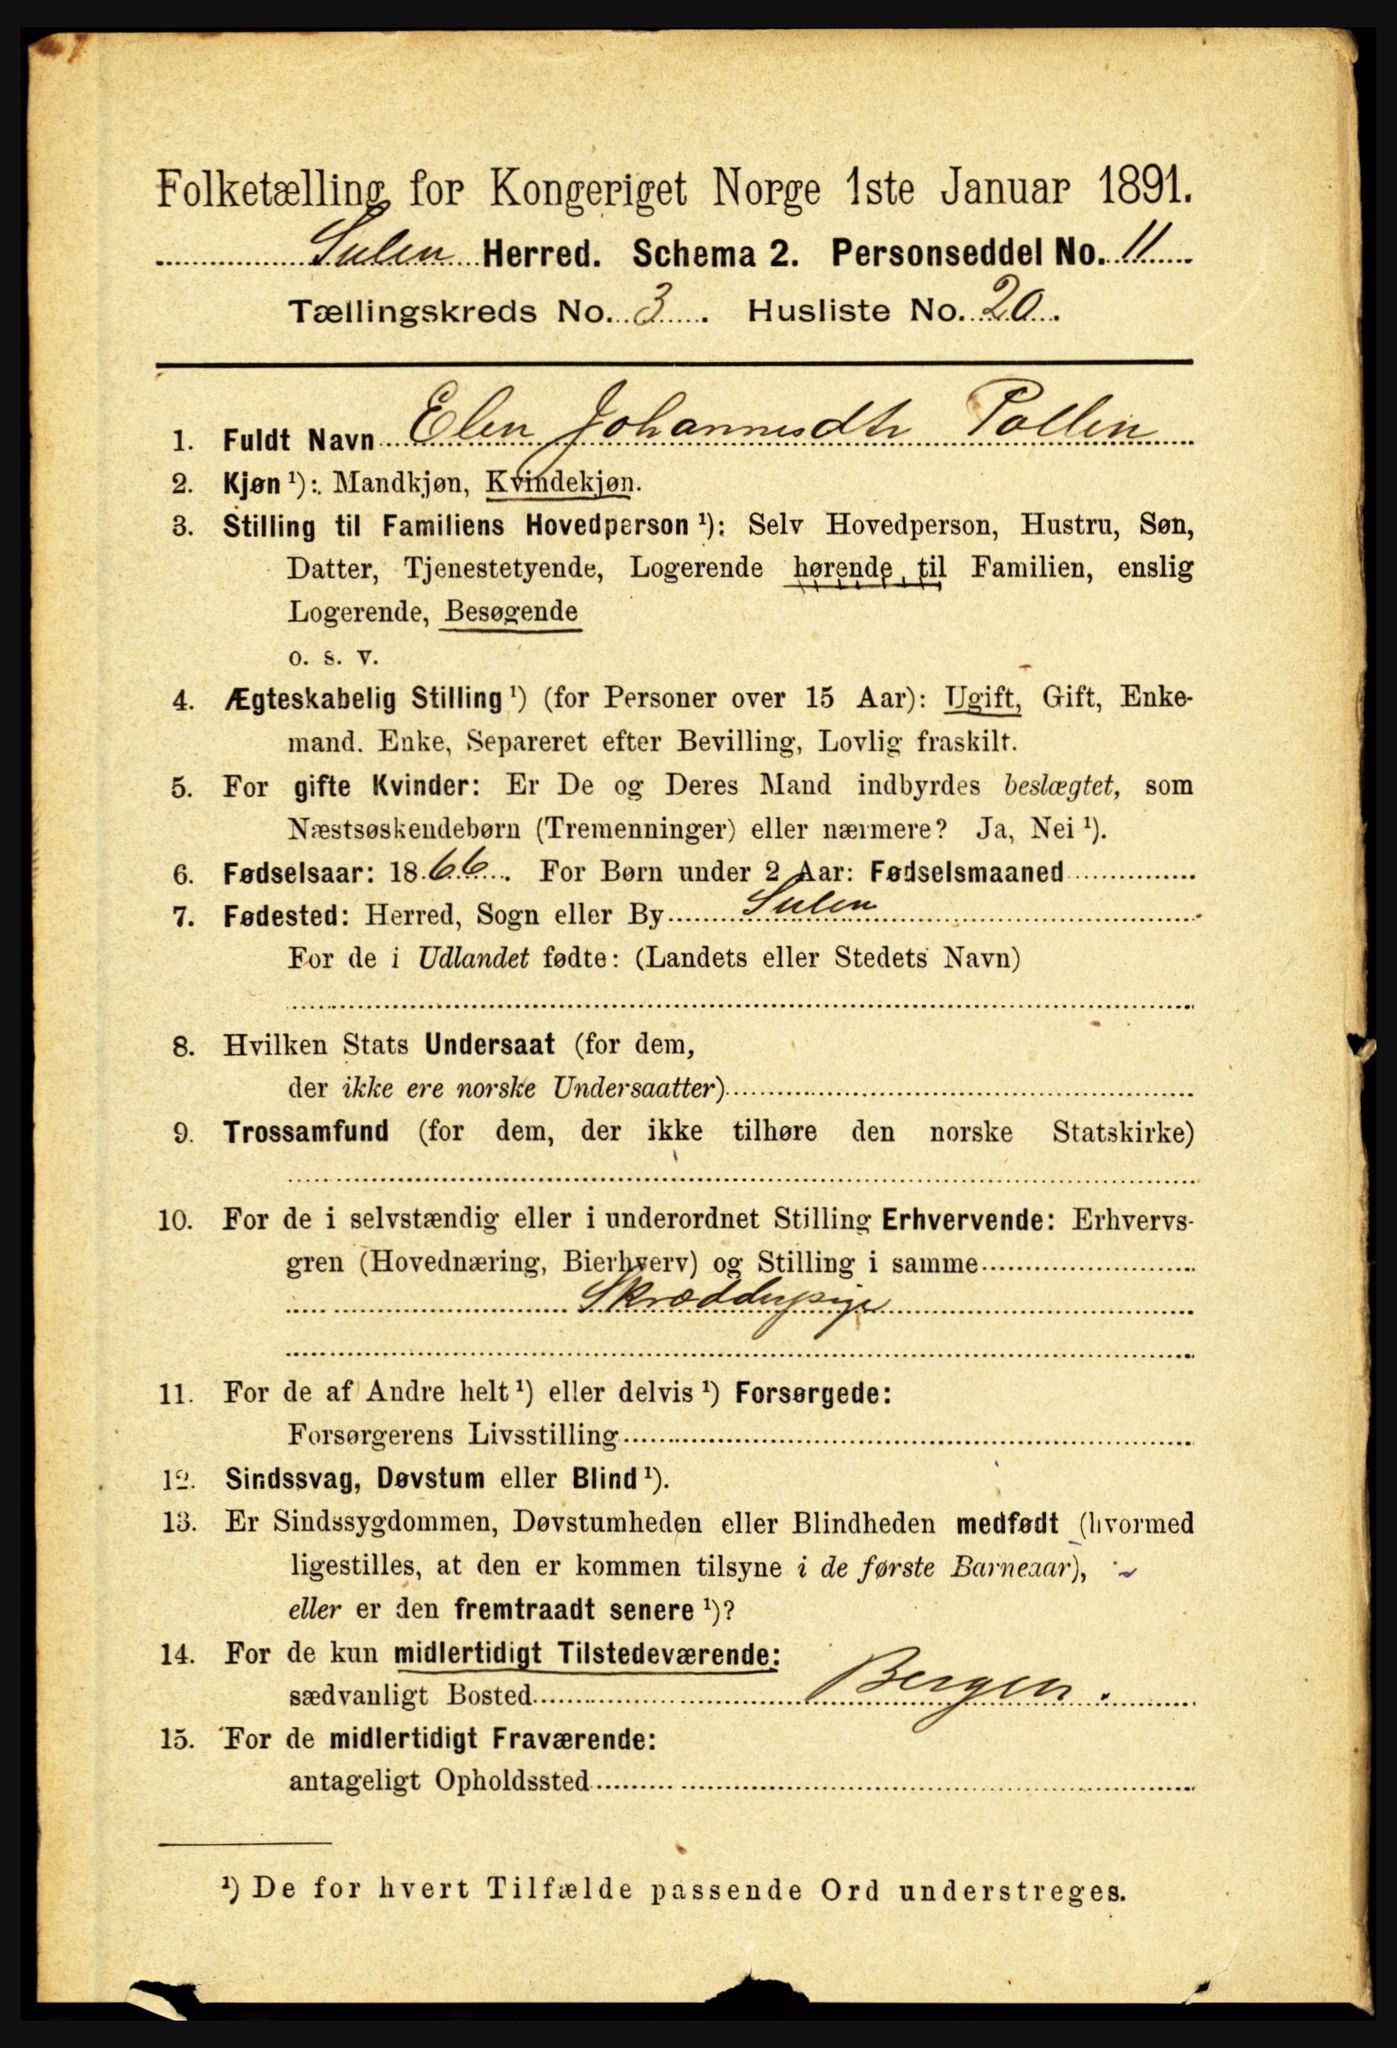 Folketælling for Kongeriget Norge 1ste Januar 1891.
Sulen Herred. Schema 2. Personseddel No. 11
Tællingskreds No. 3. Husliste No. 20.
1. Fuldt Navn Elen Johannesdtr Pollen
2. Kjøn ¹): Mandkjøn, Kvindekjøn.
3. Stilling til Familiens Hovedperson ¹): Selv Hovedperson, Hustru, Søn,
Datter, Tjenestetyende, Logerende hørende til Familien, enslig
Logerende, Besøgende
o. s. v.
4. Ægteskabelig Stilling ¹) (for Personer over 15 Aar): Ugift, Gift, Enke-
mand. Enke, Separeret efter Bevilling, Lovlig fraskilt.
5. For gifte Kvinder: Er De og Deres Mand indbyrdes beslægtet, som
Næstsøskendebørn (Tremenninger) eller nærmere? Ja, Nei ¹).
6. Fødselsaar: 1866. For Børn under 2 Aar: Fødselsmaaned
7. Fødested: Herred, Sogn eller By Sulen
For de i Udlandet fødte: (Landets eller Stedets Navn)
8. Hvilken Stats Undersaat (for dem,
der ikke ere norske Undersaatter)
9. Trossamfund (for dem, der ikke tilhøre den norske Statskirke)
10. For de i selvstændig eller i underordnet Stilling Erhvervende: Erhvervs-
gren (Hovednæring, Bierhverv) og Stilling i samme
Skrædderpige
11. For de af Andre helt ¹) eller delvis ¹) Forsørgede:
Forsørgerens Livsstilling
12. Sindssvag, Døvstum eller Blind ¹).
13. Er Sindssygdommen, Døvstumheden eller Blindheden medfødt (hvormed
ligestilles, at den er kommen tilsyne i de første Barneaar),
eller er den fremtraadt senere ¹)?
14. For de kun midlertidigt Tilstedeværende:
sædvanligt Bosted Bergen.
15. For de midlertidigt Fraværende:
antageligt Opholdssted
¹) De for hvert Tilfælde passende Ord understreges.